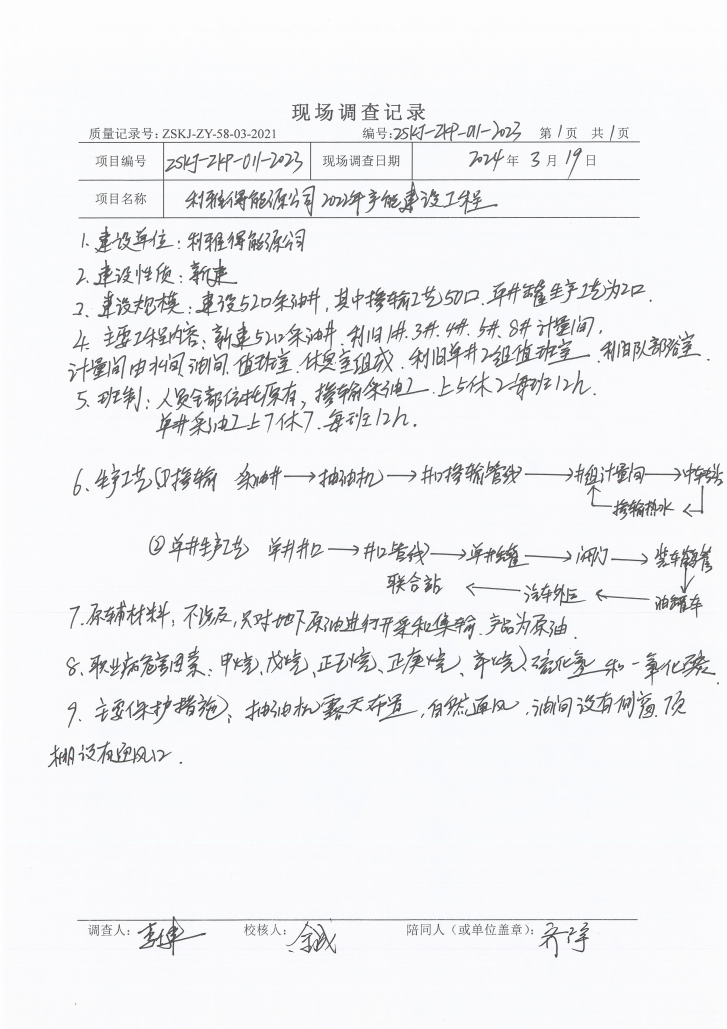 现场调查记录
质量记录号: ZSKJ-ZY-58-03-2021 编号: ZSKJ-ZKP-011-2023 第1页 共1页
项目编号 ZSKJ-ZKP-011-2023 现场调查日期 2024年3月19日
项目名称 利雅得能源公司2022年产能建设工程
1. 建设单位：利雅得能源公司
2. 建设性质：新建
3、建设规模：建设52口采油井，其中掺输工艺50口.单井罐生产工艺为2口.
4. 主要工程内容：新建52口采油井.利旧1#.3#.4#.5#.8#计量间,
计量间由水间.油间.值班室.休息室组成.利旧单井2组值班室.利旧队部浴室.
5. 班制：人员全部依托原有，掺输采油工.上5休2每班12h.
单井采油工上7休7.每班12h.
6、生产工艺①掺输 采油井→抽油机→井口掺输管线→井组计量间→中转站
掺输热水
②单井生产工艺 单井井口→井口管线→单井罐→闸门→装车鹤管
联合站←汽车外运←油罐车
7. 原辅材料：不涉及，只对地下原油进行开采和集输.产品为原油.
8、职业病危害因素：甲烷、戊烷、正己烷、正庚烷、辛烷、硫化氢和一氧化碳.
9、主要保护措施：抽油机露天布置，自然通风.油间设有侧窗.顶
棚设有通风口.
调查人: 校核人: 陪同人（或单位盖章）: